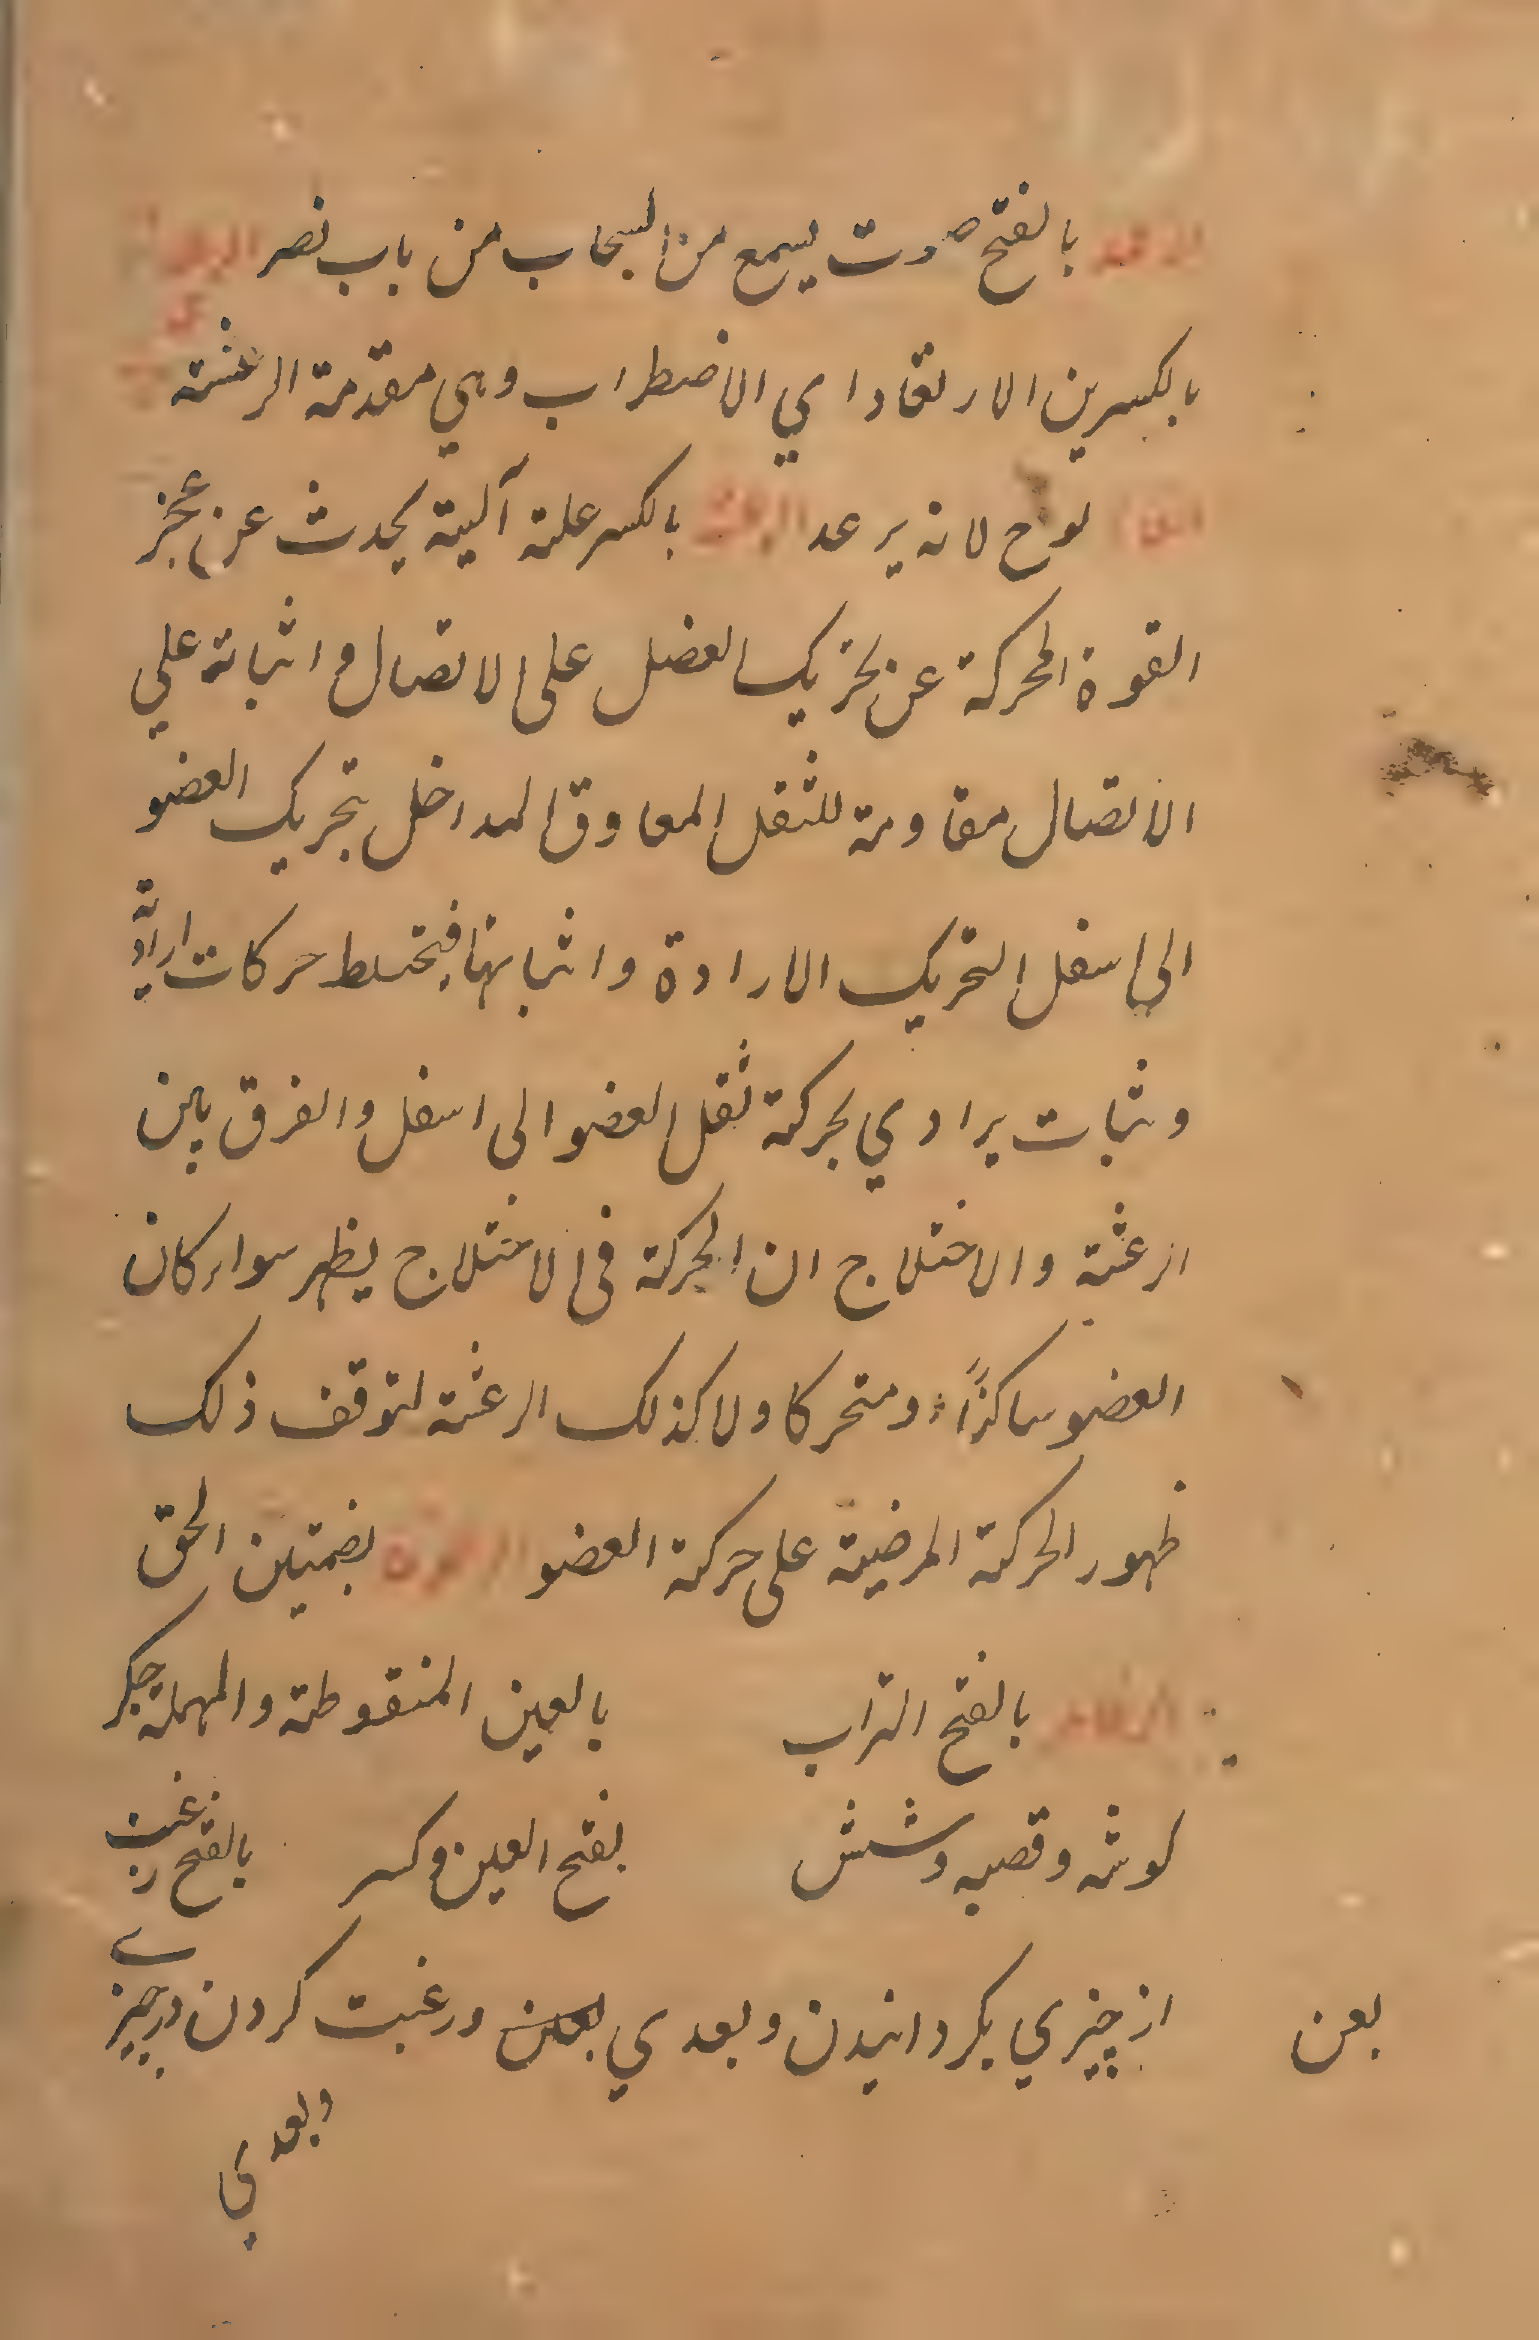 الرعد بالفتح صوت يسمع من السحاب من باب نصر
بالكسرين الارتعاد اي الاضطراب وهي مقدمة الرعشة
لوح لانه يرعد بالكسر علة آلية يحدث عن عجز
القوة المحركة عن تحريك العضل على الاتصال و اثباته علي
الاتصال مقاومة للثقل المعاوق المداخل بتحريك العضو
الى اسفل التحريك الارادة و اثباتها فيختلط حركات ارادية
و ثبات برادي بحركة ثقل العضو الى اسفل و الفرق بين
ارعشة و الاختلاج ان الحركة فى الاختلاج يظهر سواء كان
العضو ساكنًا او متحركا ولا كذلك الرعشة لتوقف ذلك
ظهور الحركة المرضية على حركة العضو بضمتين الحق
الرغام بالفتح التراب بالعين المنقوطة و المهملة جكر
كوشه و قصبه و شش بفتح العين و كسر بالفتح رغبت
بعن از چيزي بكردانيدن و بعدي بعن و رغبت كردن در چيزے
و بعدي